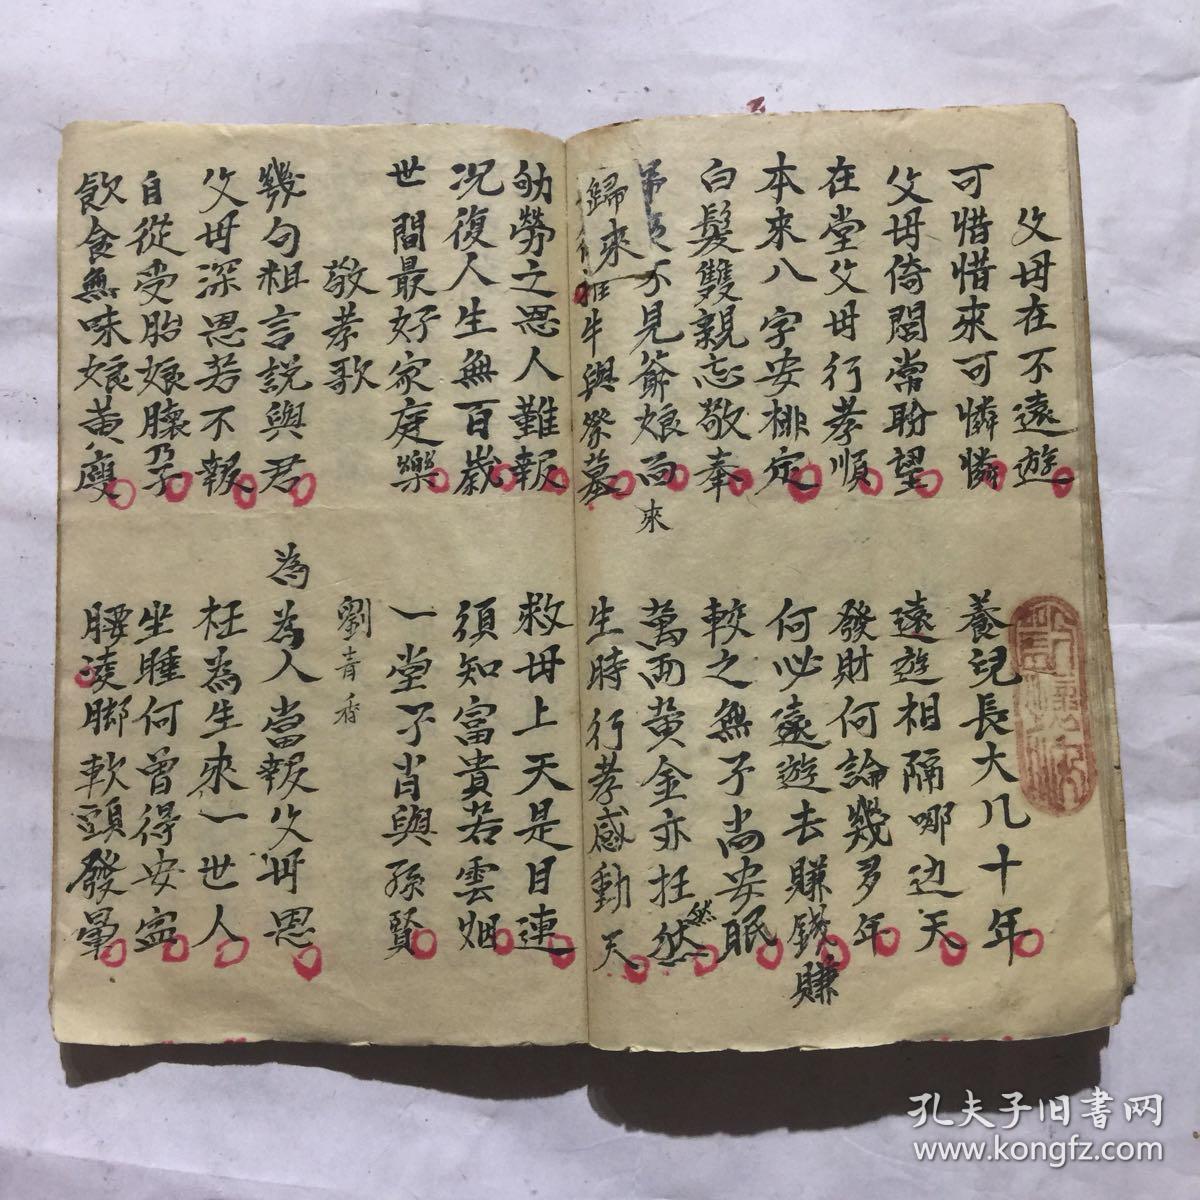 父母在不遠遊
養兒長大几十年
可惜惜來可憐憐
遠遊相隔哪边天
父母倚閭常盼望
發財何論幾多年
在堂父母行孝順
何必遠遊去賺錢賺
本來八字安排定
較之無子尚安眠
白髮雙親忘敬奉
萬両黃金亦枉然然
不見爺娘面來
歸來
椎牛與祭墓
生時行孝感動天
劬勞之恩人難報
救母上天是目連
况復人生無百歲
須知富貴若雲烟
世間最好家庭樂
一堂子肖與孫賢
敬孝歌
劉青香
幾句粗言說與君
為為人當報父母恩
父母深恩若不報
枉為生來一世人
自從受胎娘懷子乃
坐睡何曾得安寍
飲食無味娘黃瘦
腰凌脚軟頭發暈
孔夫子旧書网
www.kongfz.com